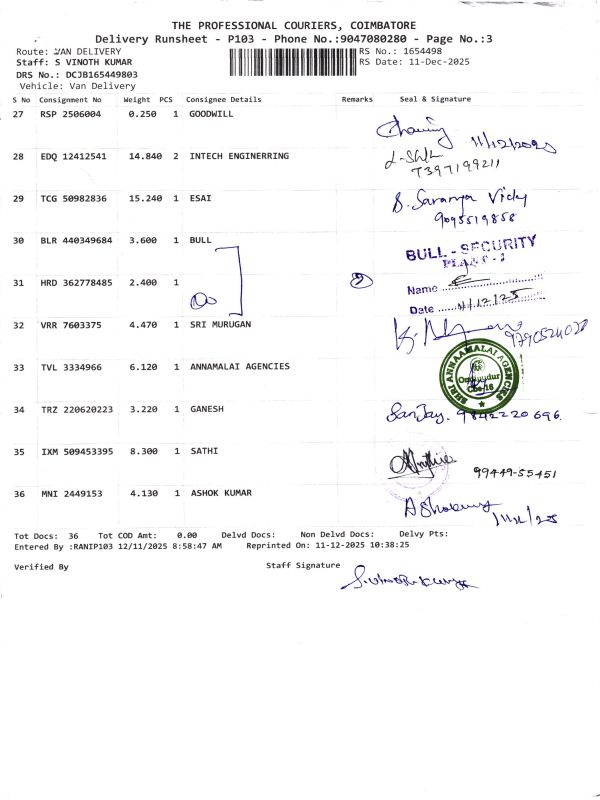 THE PROFESSIONAL COURIERS, COIMBATORE
Delivery Runsheet - P103 - Phone No.:9047080280 - Page No.:3
Route: VAN DELIVERY RS No.: 1654498
Staff: S VINOTH KUMAR RS Date: 11-Dec-2025
DRS No.: DCJB165449803
Vehicle: Van Delivery
S No Consignment No Weight PCS Consignee Details Remarks Seal & Signature
27 RSP 2506004 0.250 1 GOODWILL
11/12/2025
28 EDQ 12412541 14.840 2 INTECH ENGINERRING
7397199211
29 TCG 50982836 15.240 1 ESAI B. Saranya Vicky
9095519858
30 BLR 440349684 3.600 1 BULL BULL - SECURITY
31 HRD 362778485 2.400 1 2 Name
Date 11/12/25
32 VRR 7603375 4.470 1 SRI MURUGAN
33 TVL 3334966 6.120 1 ANNAMALAI AGENCIES SHRI ANNAAMALAI AGENCIES
Cbe-16
34 TRZ 220620223 3.220 1 GANESH Sanjay. 9842220696.
35 IXM 509453395 8.300 1 SATHI 99449-55451
36 MNI 2449153 4.130 1 ASHOK KUMAR
Tot Docs: 36 Tot COD Amt: 0.00 Delvd Docs: Non Delvd Docs: Delvy Pts:
Entered By :RANIP103 12/11/2025 8:58:47 AM Reprinted On: 11-12-2025 10:38:25
Verified By Staff Signature